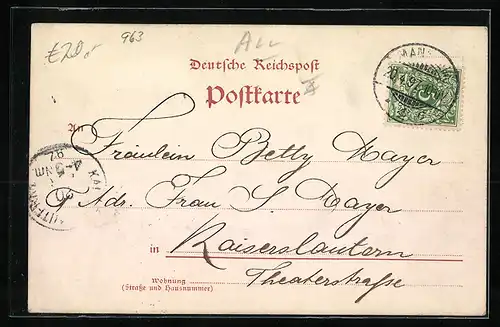 £20,- 963
Deutsche Reichspost
Postkarte
An
Fräulein Betty Mayer
Adr. Frau S. Mayer
in Kaiserslautern
Wohnung
(Straße und Hausnummer)
Theaterstraße